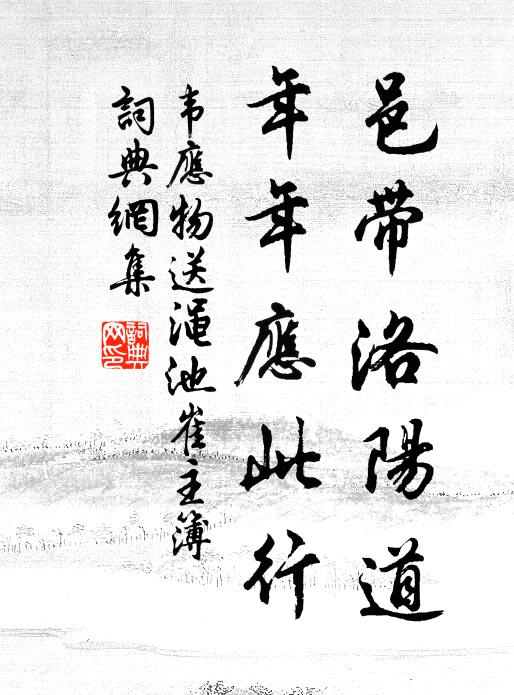 邑帶洛陽道
年年應此行
韦應物送渑池崔主簿
詞典網集
詞典网印